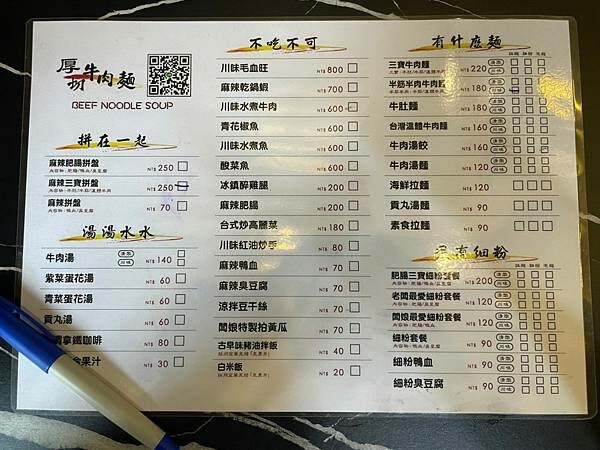 厚切牛肉麵
BEEF NOODLE SOUP
拼在一起
麻辣肥腸拼盤 NT$ 250
麻辣三寶拼盤 NT$ 250
麻辣拼盤 NT$ 70
湯湯水水
牛肉湯 清燉 川味 NT$ 140
紫菜蛋花湯 NT$ 60
青菜蛋花湯 NT$ 60
貢丸湯 NT$ 60
拿鐵咖啡 NT$ 80
果汁 NT$ 30
不吃不可
川味毛血旺 NT$ 800
麻辣乾鍋蝦 NT$ 700
川味水煮牛肉 NT$ 600
青花椒魚 NT$ 600
川味水煮魚 NT$ 600
酸菜魚 NT$ 600
冰鎮醉雞腿 NT$ 200
麻辣肥腸 NT$ 200
台式炒高麗菜 NT$ 180
川味紅油炒手 NT$ 80
麻辣鴨血 NT$ 70
麻辣臭豆腐 NT$ 70
涼拌豆干絲 NT$ 70
闆娘特製拍黃瓜 NT$ 70
古早味豬油拌飯 NT$ 40
白米飯 NT$ 20
有什麼麵
三寶牛肉麵 清燉 川味 NT$ 220
半筋半肉牛肉麵 清燉 川味 NT$ 180
牛肚麵 清燉 川味 NT$ 180
台灣溫體牛肉麵 清燉 川味 NT$ 160
牛肉湯餃 清燉 川味 NT$ 160
牛肉湯麵 清燉 川味 NT$ 120
海鮮拉麵 NT$ 120
貢丸湯麵 NT$ 90
素食拉麵 NT$ 90
細粉
肥腸三寶細粉套餐 清燉 川味 NT$ 200
老闆最愛細粉套餐 清燉 川味 NT$ 120
闆娘最愛細粉套餐 清燉 川味 NT$ 120
細粉套餐 清燉 川味 NT$ 90
細粉鴨血 清燉 川味 NT$ 90
細粉臭豆腐 清燉 川味 NT$ 90